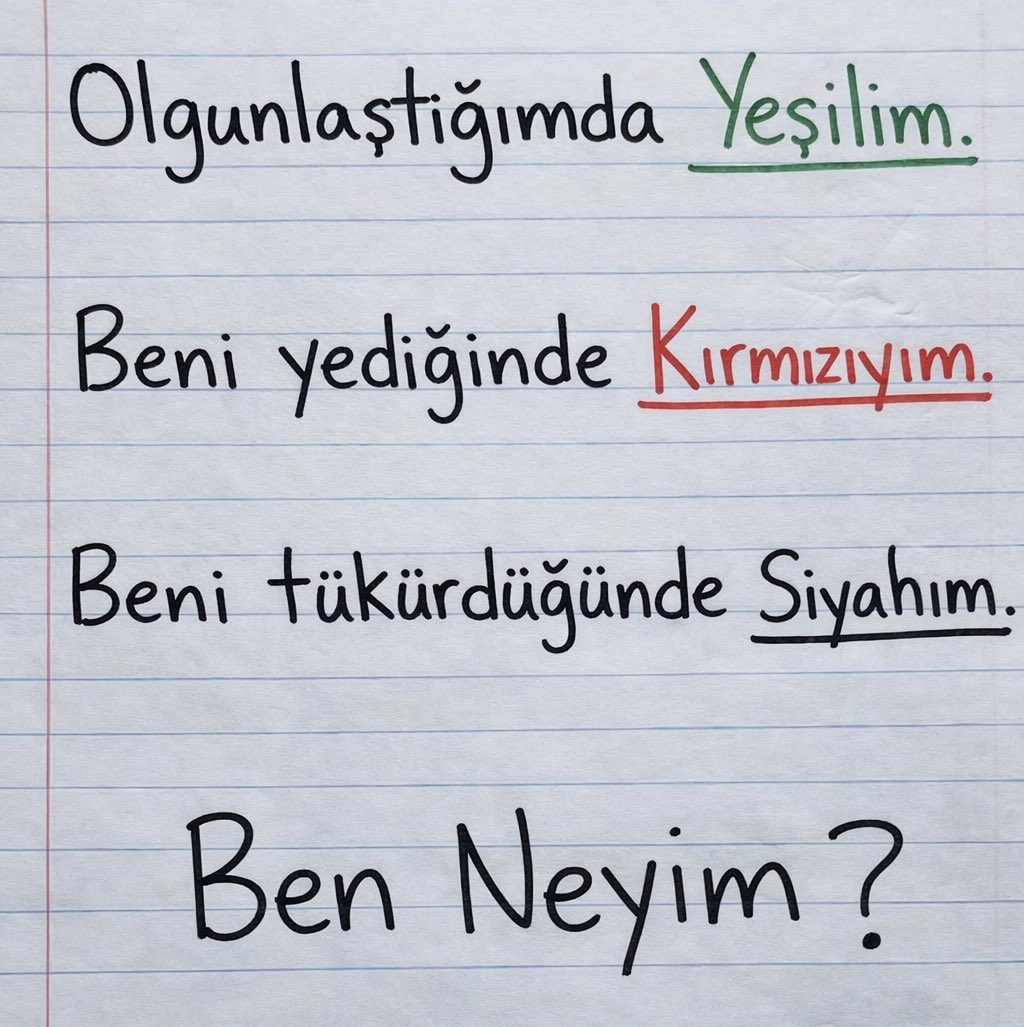 Olgunlaştiğımda Yeşilim.
Beni yediğinde Kırmızıyım.
Beni tükürdüğünde Siyahım.
Ben Neyim?